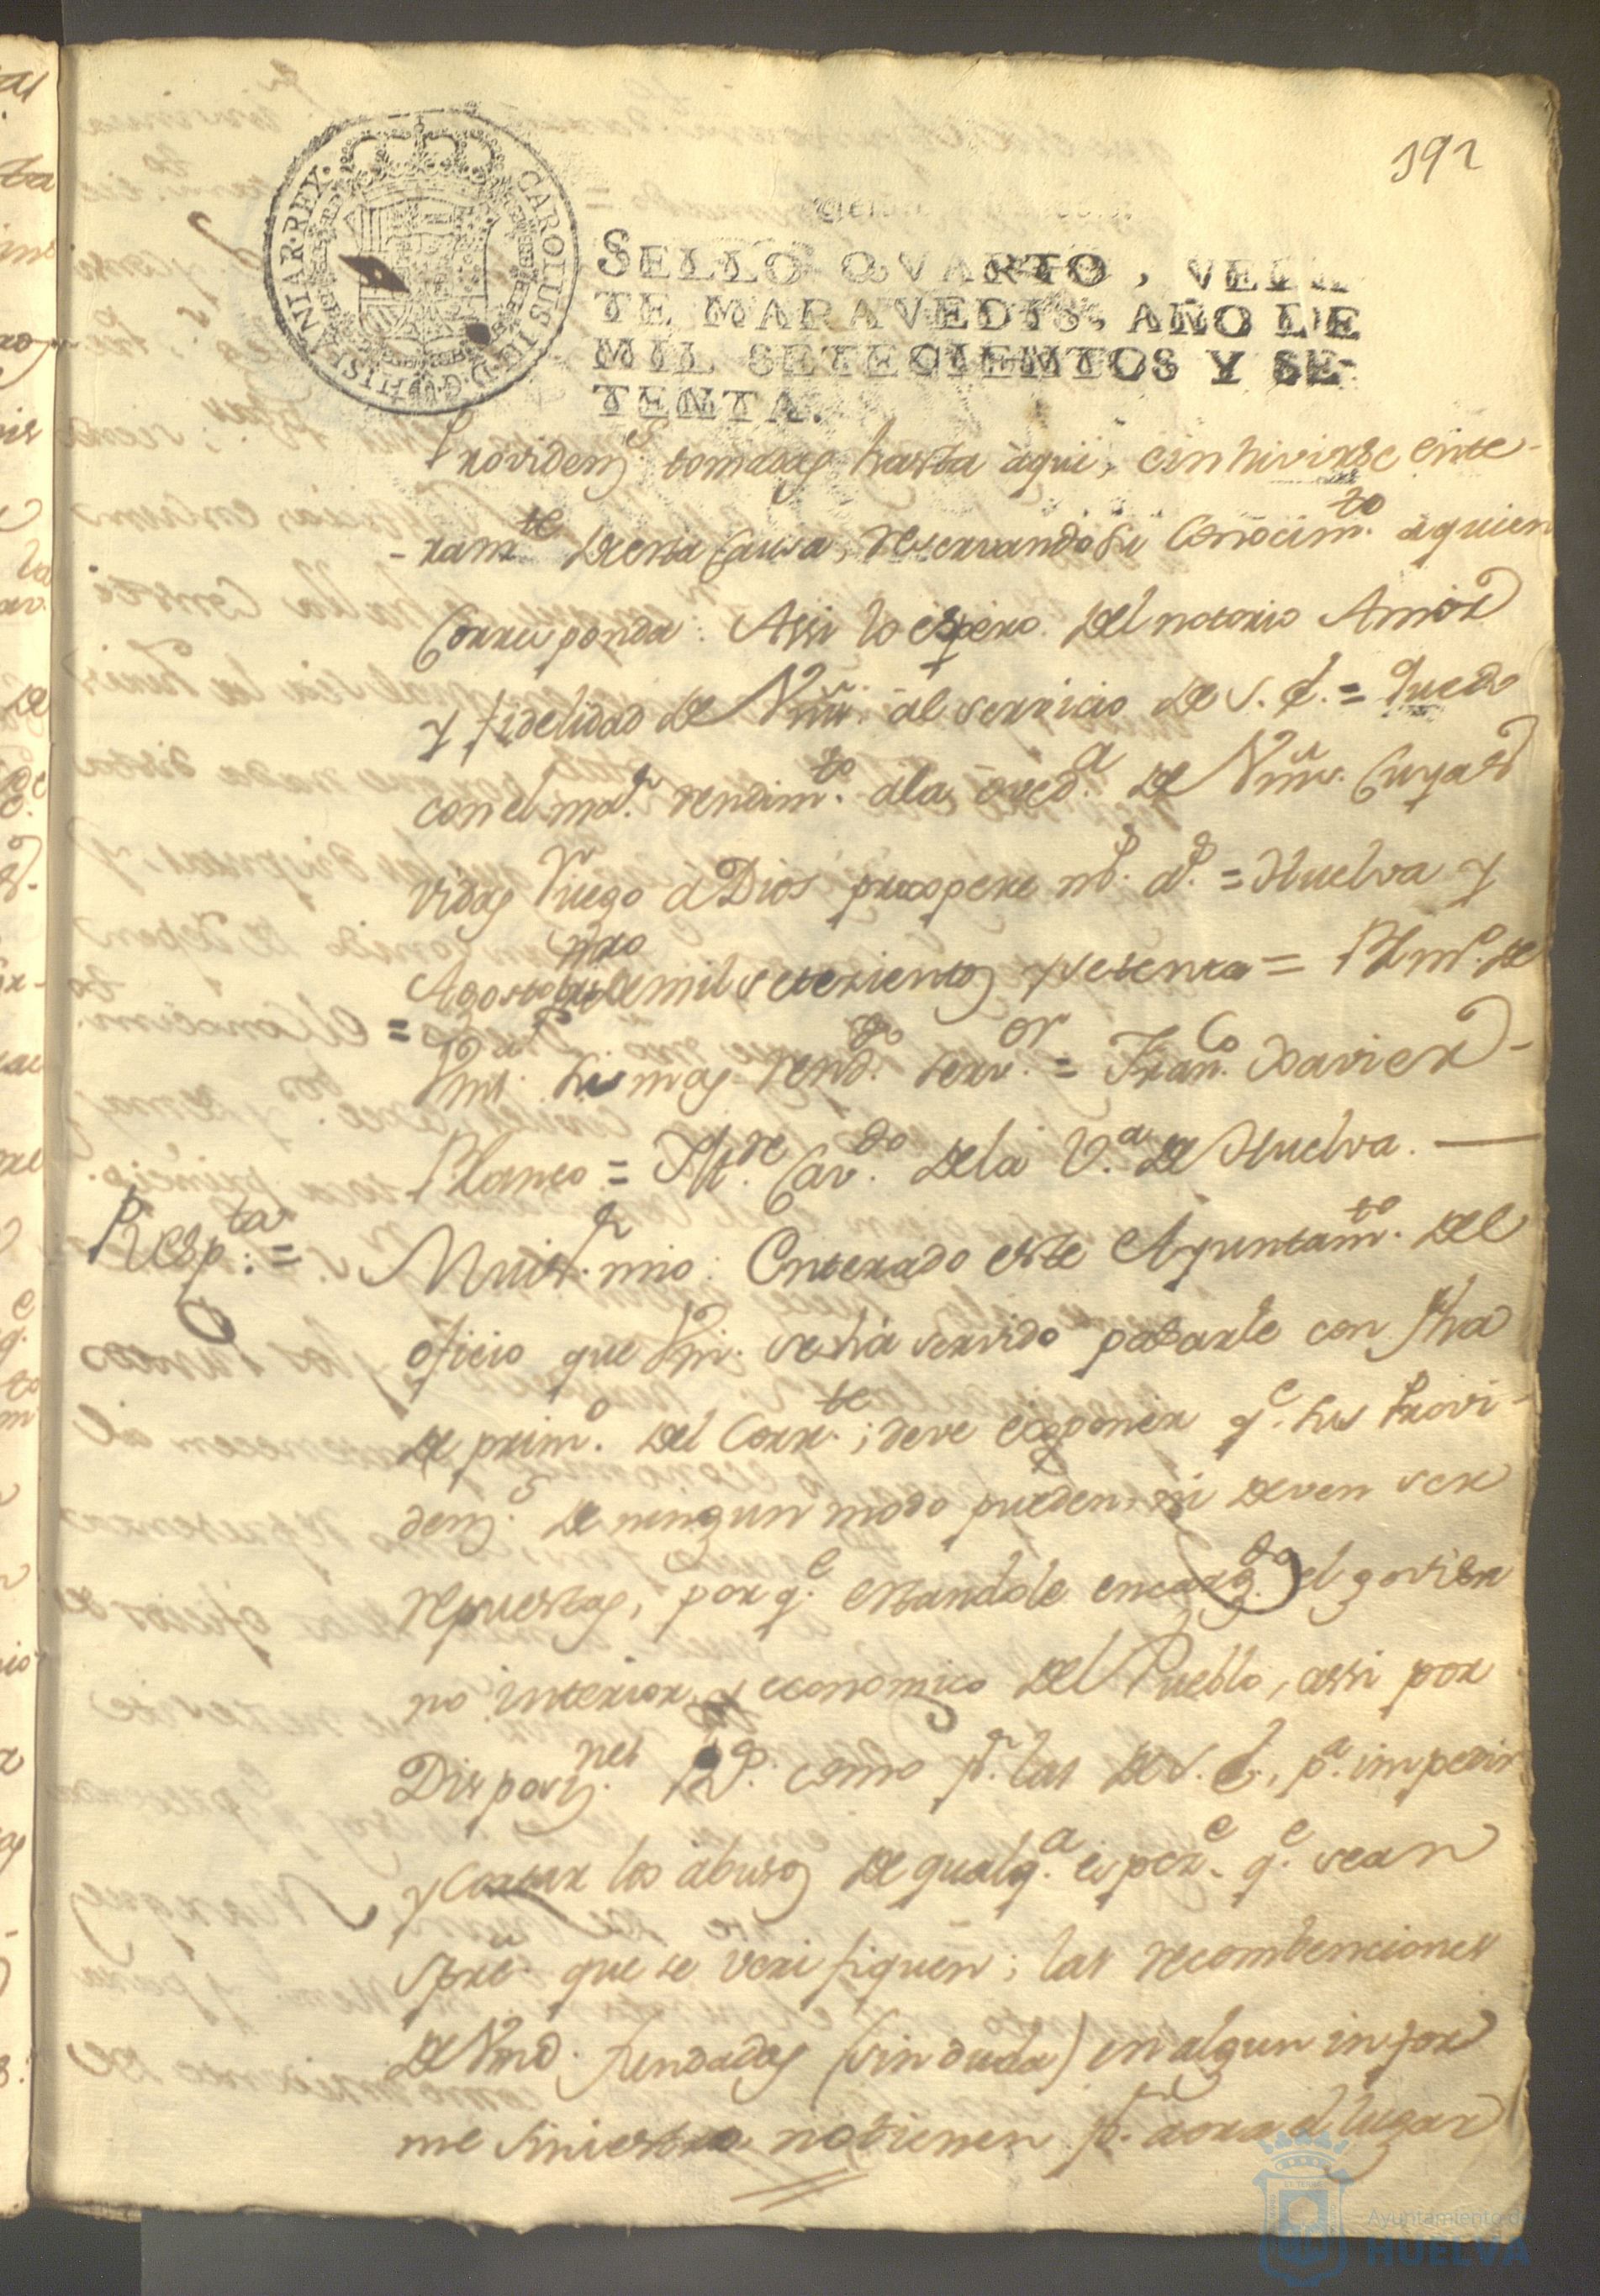 192
CAROLUS III D.G. HISPANIAR. REX.
SELLO QVARTO, VEIN
TE MARAVEDIS, AÑO DE
MIL SETECIENTOS Y SE-
TENTA.
Providens. tomadas hasta aqui, e inhivirse ente-
-ramte. de esta Causa, reservando su Conocimto. à quien
Corresponda: Assi lo espero del notorio Amor
y fidelidad de Vms. al servicio de S. M. = Quedo
con el mor. rendimto. ala oveda. de Vms. Cuyas
vidas Ruego à Dios prospere ms. as. = Huelva y
Agosto pro. de mil setezientos y setenta = Blmo. de
Vms. su mas rendo. servor. = Franco. Xavier
Blanco = Ille. Cavdo. dela Va. de Huelva. —
Respta. = Mui Sr. mio: Enterado este Ayuntamto. del
oficio que Vm. se há servido pasarle con fha
de primo. del Corrte.; deve exponer qe. sus Provi-
dens. de ningun modo pueden, ni deven ser
repuestas, por qe. estandole encargdo. el govier
no interior, y economico del Pueblo, assi por
Disposiznes. Rs. como pr. las de S. E., pa. impedir
y Cortar los abusos de qualqa. espece. qe. sean
spre. que se verifiquen; las recombenciones
de Vmd. fundadas (sin duda) en algun infor
me siniestro no tienen pr. aora el lugar
Ayuntamiento de
HUELVA